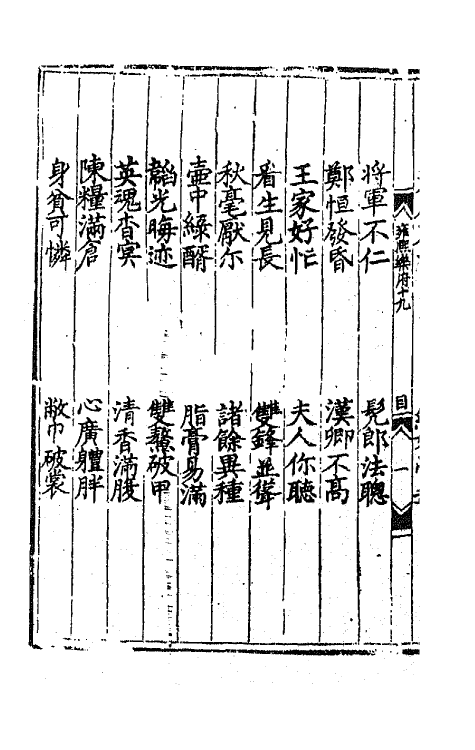 雍熙樂府十九
目
一
將軍不仁
髡郎法聰
鄭恒發昏
漢卿不高
王家好忙
夫人你聽
看生見長
雙鋒並聳
秋毫厭尓
諸餘異種
壺中綠醑
脂膏易滿
韜光晦迹
雙鰲破甲
英魂杳冥
清香滿腹
陳糧滿倉
心廣體胖
身貧可憐
敝巾破裳